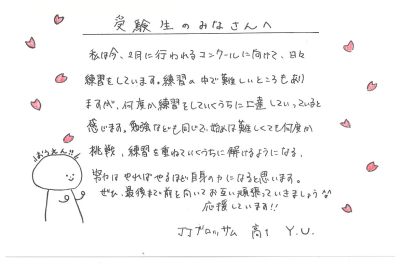 受験生のみなさんへ
私は今、2月に行われるコンクールに向けて、日々
練習をしています。練習の中で難しいところもあり
ますが、何度か練習をしていくうちに上達していっていると
感じます。勉強なども同じで、始めは難しくても何度か
挑戦、練習を重ねていくうちに解けるようになる、
努力はやればやるほど自身の力になると思います。
ぜひ、最後まで前を向いてお互い頑張っていきましょうな
応援しています!!
JJブロッサム 高1 Y.U.